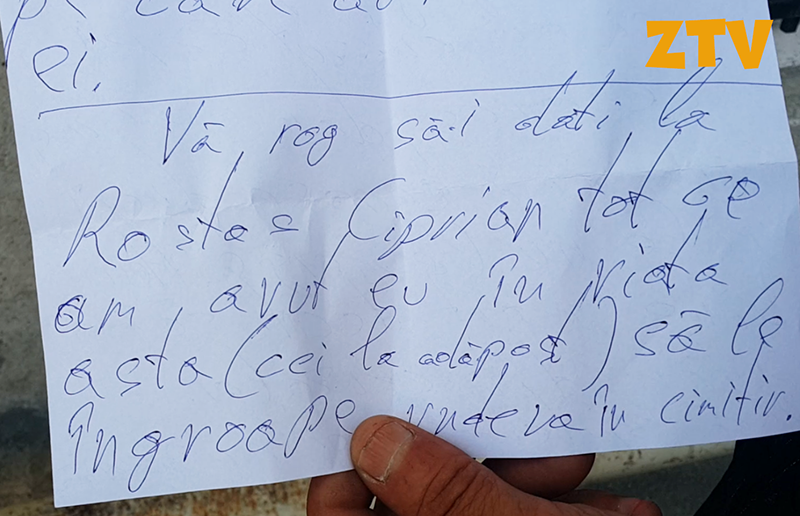 ZTV
ei.
Vă rog să-i dati la
Rostas Ciprian tot ce
am avut eu în viata
asta (cei la adăpost) să le
îngroape undeva în cimitir.